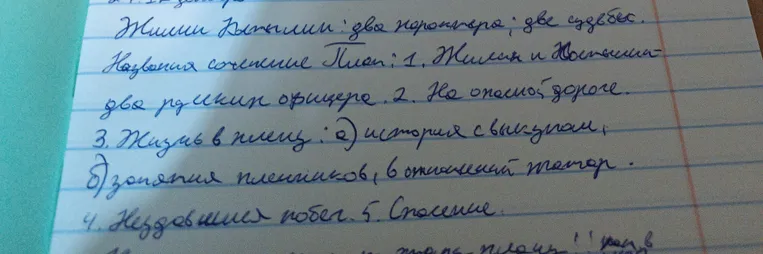 Жилин Костылин: два характера; две судьбы.
Названия сочинение План: 1. Жилин и Костылин-
два русских офицера. 2. На опасной дороге.
3. Жизнь в плену: а) история с выкупом,
б) занятия пленников, в отношений татар.
4. Неудавшийся побег. 5. Спасение.